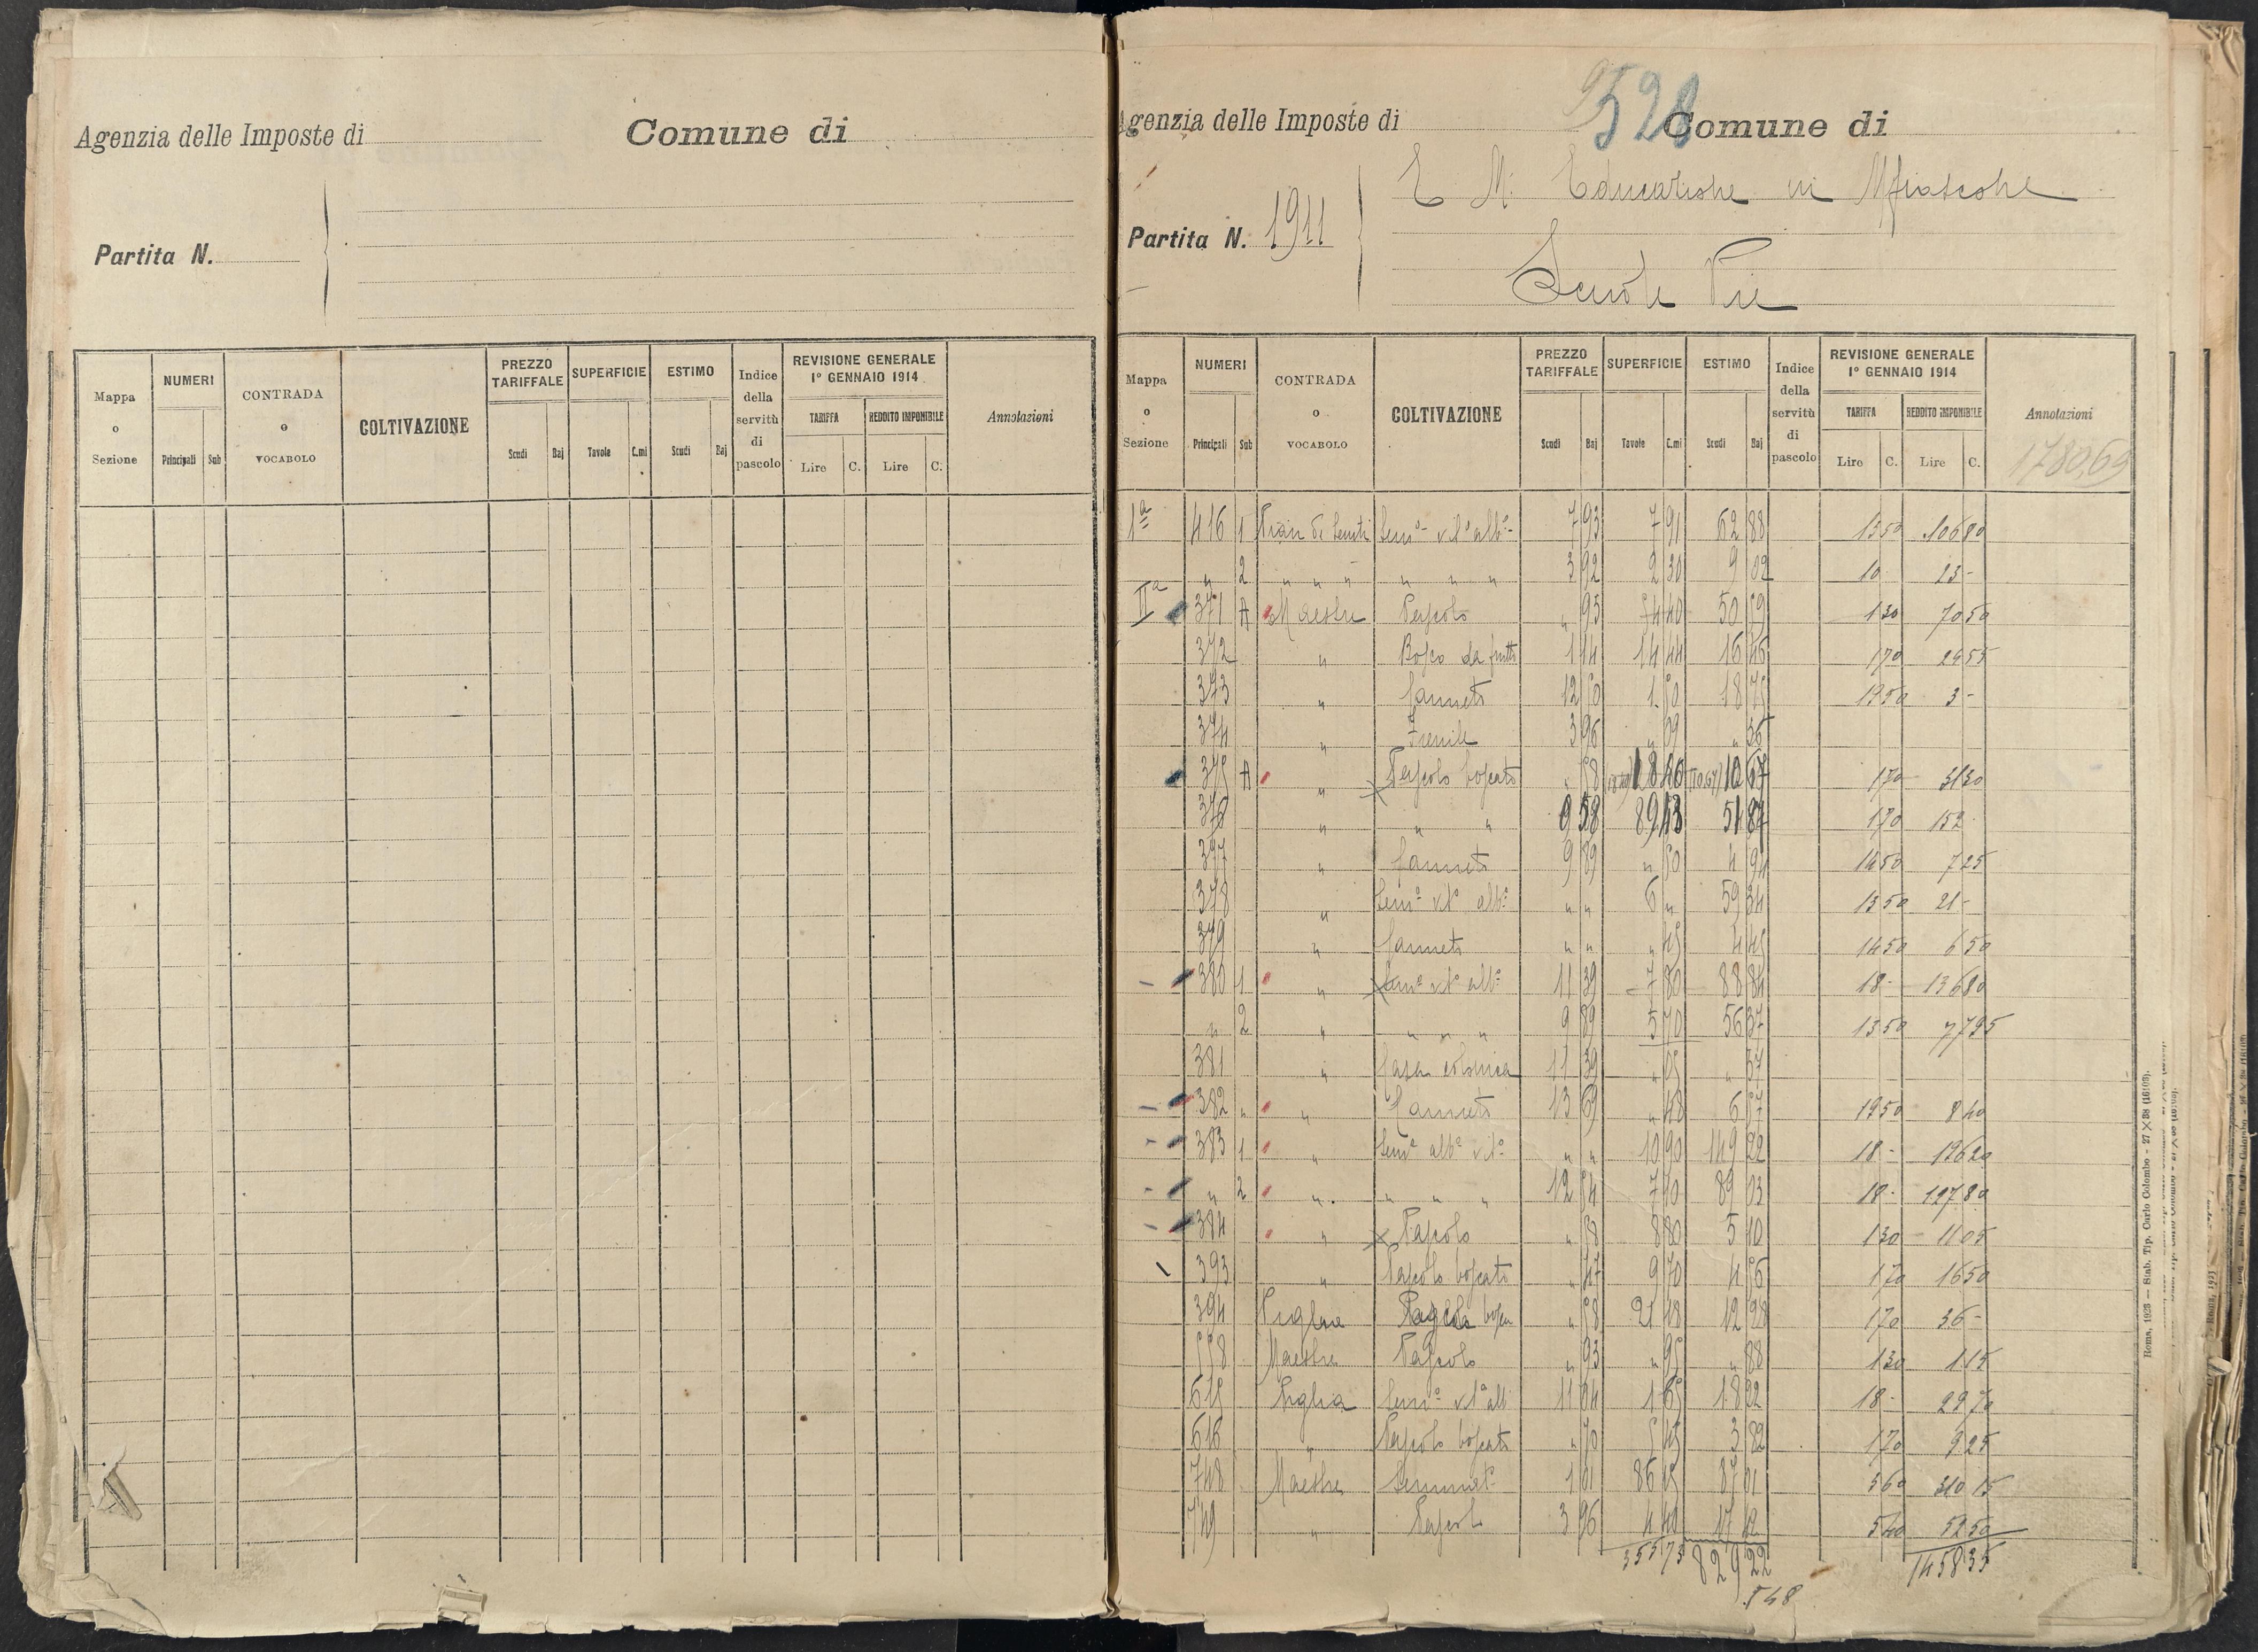 Agenzia delle Imposte di Comune di
Partita N.
Mappa o Sezione NUMERI Principali Sub CONTRADA o VOCABOLO COLTIVAZIONE PREZZO TARIFFALE Scudi Baj SUPERFICIE Tavole C.mi ESTIMO Scudi Baj Indice della servitù di pascolo REVISIONE GENERALE 1° GENNAIO 1914 TARIFFA Lire C. REDDITO IMPONIBILE Lire C. Annotazioni
528
genzia delle Imposte di Comune di
E M: Educatishe in
Partita N. 1911
Scuole Pie
Mappa o Sezione NUMERI Principali Sub CONTRADA o VOCABOLO COLTIVAZIONE PREZZO TARIFFALE Scudi Baj SUPERFICIE Tavole C.mi ESTIMO Scudi Baj Indice della servitù di pascolo REVISIONE GENERALE 1° GENNAIO 1914 TARIFFA Lire C. REDDITO IMPONIBILE Lire C. Annotazioni
1780,69
1ª 416 1 Pian di Sem° vt° alb° 7 93 7 91 62 88 13 50 106 80
" 2 " " " " " " 3 92 2 30 9 02 10 - 23 -
IIª 371 A Maestre Pascolo " 95 50 59 1 30 70 50
372 " Bosco da frutto 1 14 14 44 16 46 1 70 24 55
373 " Canneto 12 50 1 50 18 75 19 50 3 -
374 " Fienile 3 96 " 09 " 36
375 A " Pascolo boscato " 58 18 40 10 67 1 70 31 30
376 " " " 0 58 89 43 51 87 1 70 152
377 " Canneto 9 89 " 50 4 94 14 50 7 25
378 " Sem° vt° alb° " " 6 " 59 34 13 50 21 -
379 " Canneto " " " 45 4 45 14 50 6 50
380 1 " Sem° vt° alb° 11 39 7 80 88 84 18 - 136 80
" 2 " " " " 9 89 5 70 56 37 13 50 77 95
381 " Casa colonica 11 39 " 05 " 57
382 " " Canneto 13 69 " 48 6 57 19 50 8 40
383 1 " Sem° alb° vt° " " 10 90 149 22 18 - 196 20
" 2 " " " " 12 54 7 10 89 03 18 - 127 80
384 " Pascolo " 58 8 80 5 10 1 30 11 05
393 " Pascolo boscato " 47 9 70 4 56 1 70 16 50
394 Piglia " 58 21 18 12 28 1 70 36 -
558 Maestre Pascolo " 93 " 95 " 88 1 30 1 15
615 Piglia Sem° vt° alb 11 04 1 65 18 22 18 - 29 70
616 " Pascolo boscato " 70 5 45 3 82 1 70 9 25
748 Maestre Seminat° 1 01 86 15 87 01 3 60 310 15
749 " Pascolo 3 96 4 40 17 42 5 40 52 50
355 73 829 22 1458 35
548
Roma, 1923 — Stab. Tip. Carlo Colombo - 27 X 38 (16103).